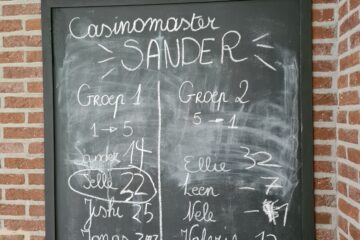 Casinomaster
SANDER
Groep 1
1 → 5
Sander 14
Jelle 22
Jishi 25
Jonas
Groep 2
5 → 1
Ellie 32
Leen -7
Nele
Valerie